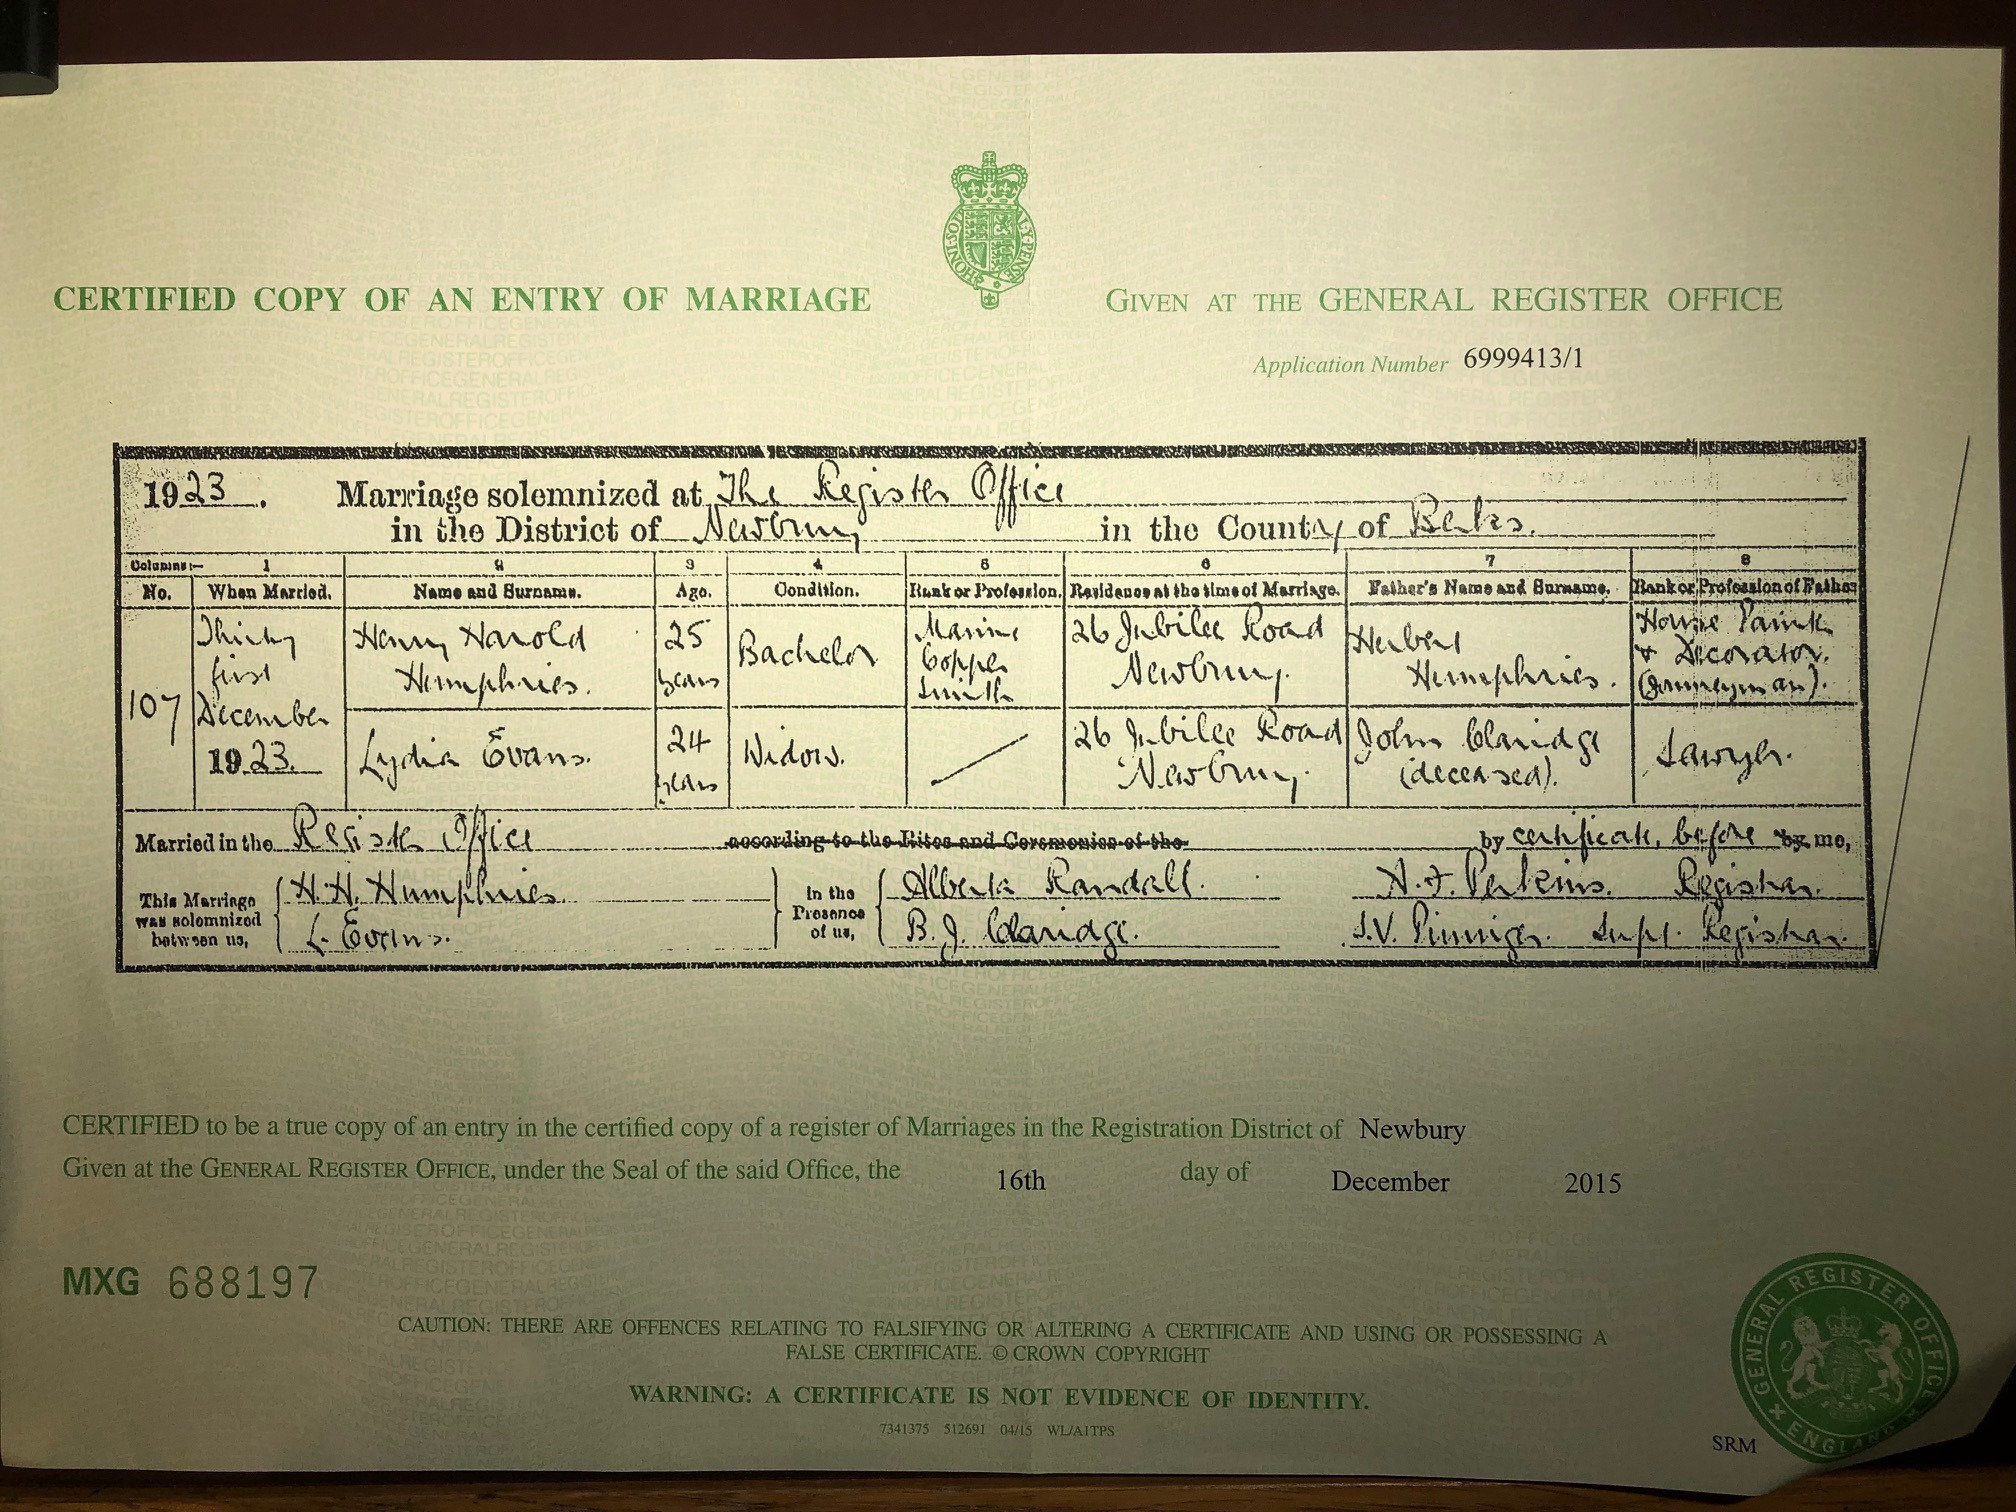 HONI SOIT QUI MAL Y PENSE
CERTIFIED COPY OF AN ENTRY OF MARRIAGE
GIVEN AT THE GENERAL REGISTER OFFICE
Application Number 6999413/1
1923. Marriage solemnized at The Register Office
in the District of Newbury in the County of Berks.
Columns:— 1 2 3 4 5 6 7 8
No. When Married. Name and Surname. Age. Condition. Rank or Profession. Residence at the time of Marriage. Father's Name and Surname. Rank or Profession of Father
107
Thirty
first
December
1923.
Henry Harold
Humphries.
25
years
Bachelor
Marine
Copper
Smith
26 Jubilee Road
Newbury.
Herbert
Humphries.
House Painter
& Decorator.
(Journeyman).
Lydia Evans.
24
years
Widow.
26 Jubilee Road
Newbury.
John Claridge
(deceased).
Sawyer.
Married in the Register Office according to the Rites and Ceremonies of the by certificate, before by me,
This Marriage
was solemnized
between us,
H. H. Humphries
L. Evans.
In the
Presence
of us,
Alberta Randall.
B. J. Claridge.
A. J. Perkins. Registrar.
S.V. Pinniger. Supt. Registrar.
CERTIFIED to be a true copy of an entry in the certified copy of a register of Marriages in the Registration District of Newbury
Given at the GENERAL REGISTER OFFICE, under the Seal of the said Office, the 16th day of December 2015
MXG 688197
CAUTION: THERE ARE OFFENCES RELATING TO FALSIFYING OR ALTERING A CERTIFICATE AND USING OR POSSESSING A
FALSE CERTIFICATE. © CROWN COPYRIGHT
WARNING: A CERTIFICATE IS NOT EVIDENCE OF IDENTITY.
7341375 512691 04/15 WL/A1TPS
SRM
GENERAL REGISTER OFFICE
ENGLAND